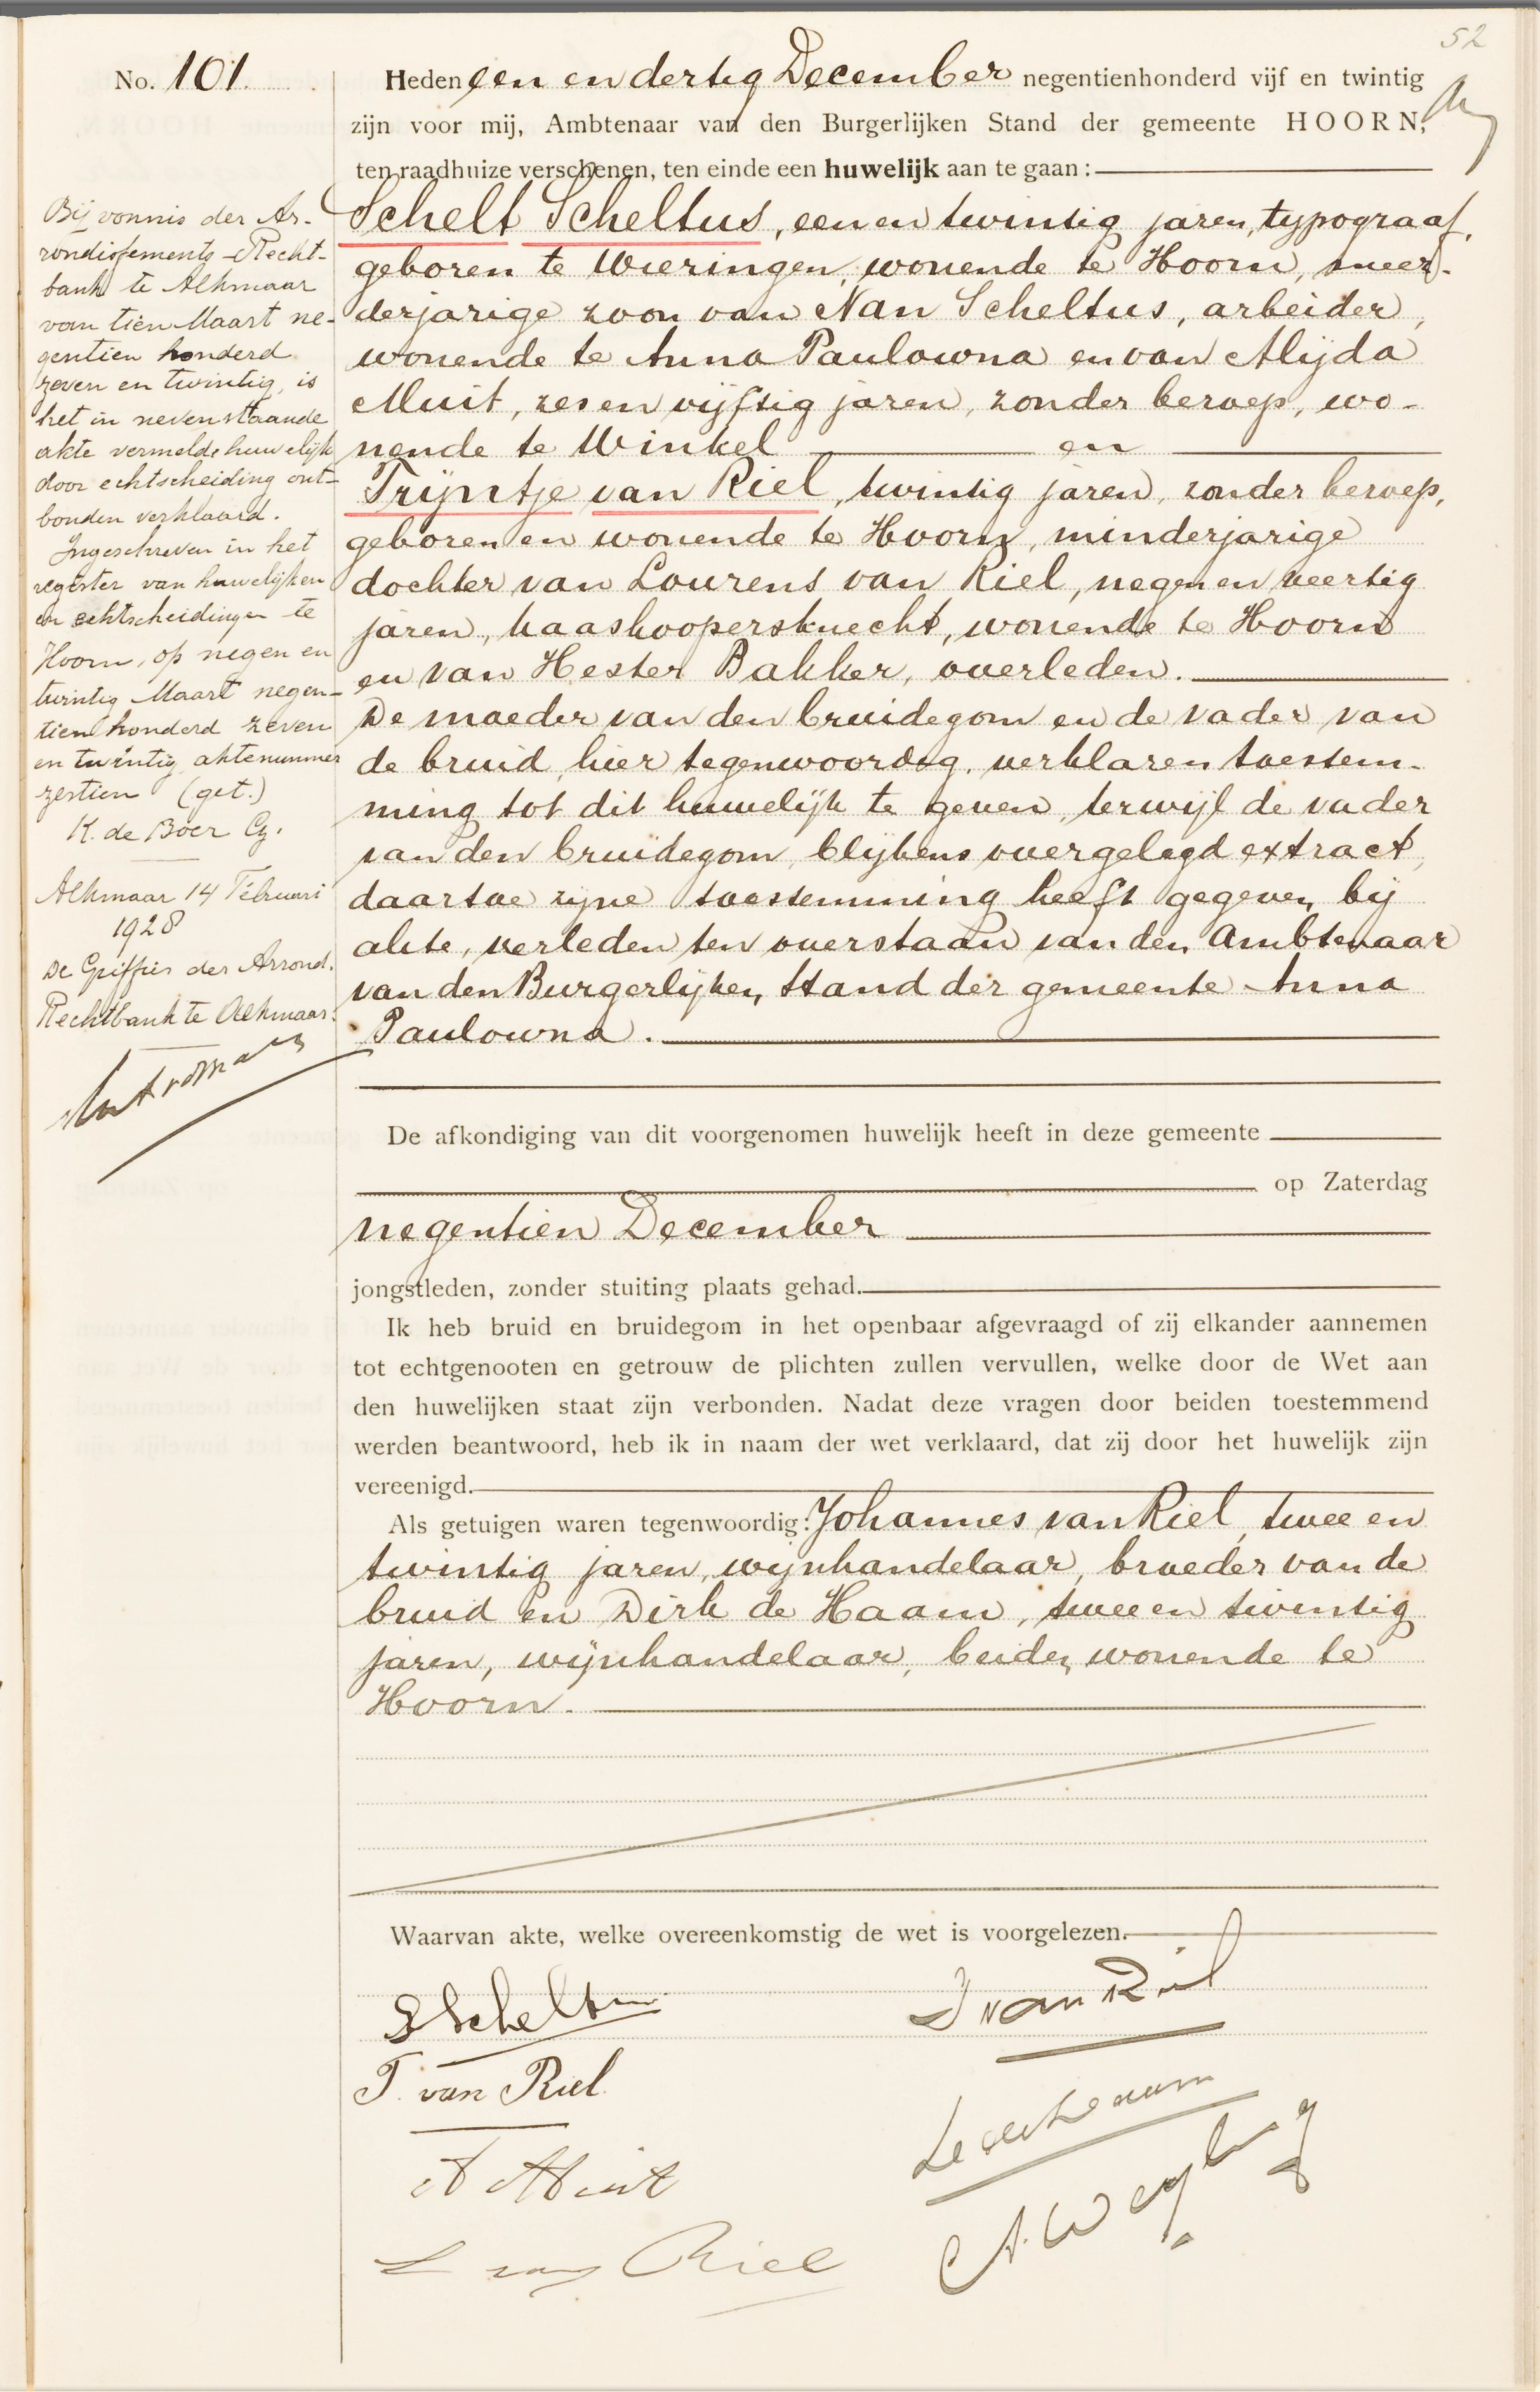 52
No. 101.
Heden een en dertig December negentienhonderd vijf en twintig
zijn voor mij, Ambtenaar van den Burgerlijken Stand der gemeente HOORN,
ten raadhuize verschenen, ten einde een huwelijk aan te gaan:
Schelt Scheltus, een en twintig jaren, typograaf,
geboren te Wieringen, wonende te Hoorn, meer-
derjarige zoon van Nan Scheltus, arbeider,
wonende te Anna Paulowna en van Alijda
Muit, zes en vijftig jaren, zonder beroep, wo-
nende te Winkel en
Trijntje van Riel, twintig jaren, zonder beroep,
geboren en wonende te Hoorn, minderjarige
dochter van Lourens van Riel, negen en veertig
jaren, kaaskoopersknecht, wonende te Hoorn
en van Hester Bakker, overleden.
De moeder van den bruidegom en de vader van
de bruid, hier tegenwoordig, verklaren toestem-
ming tot dit huwelijk te geven, terwijl de vader
van den bruidegom, blijkens overgelegd extract,
daartoe zijne toestemming heeft gegeven bij
akte, verleden ten overstaan van den Ambtenaar
van den Burgerlijken Stand der gemeente Anna
Paulowna.
Bij vonnis der Ar-
rondissements-Recht-
bank te Alkmaar
van tien Maart ne-
gentien honderd
zeven en twintig, is
het in nevenstaande
akte vermelde huwelijk
door echtscheiding ont-
bonden verklaard.
Ingeschreven in het
register van huwelijken
en echtscheidingen te
Hoorn, op negen en
twintig Maart negen-
tien honderd zeven
en twintig, aktenummer
zestien (get.)
K. de Boer Cz.
Alkmaar 14 Februari
1928
De Griffier der Arrond.
Rechtbank te Alkmaar.
De afkondiging van dit voorgenomen huwelijk heeft in deze gemeente
op Zaterdag
negentien December
jongstleden, zonder stuiting plaats gehad.
Ik heb bruid en bruidegom in het openbaar afgevraagd of zij elkander aannemen
tot echtgenooten en getrouw de plichten zullen vervullen, welke door de Wet aan
den huwelijken staat zijn verbonden. Nadat deze vragen door beiden toestemmend
werden beantwoord, heb ik in naam der wet verklaard, dat zij door het huwelijk zijn
vereenigd.
Als getuigen waren tegenwoordig: Johannes van Riel, twee en
twintig jaren, wijnhandelaar, broeder van de
bruid en Dirk de Haam, twee en twintig
jaren, wijnhandelaar, beiden wonende te
Hoorn.
Waarvan akte, welke overeenkomstig de wet is voorgelezen.
S Scheltus
J van Riel
T. van Riel
A Muit
L van Riel